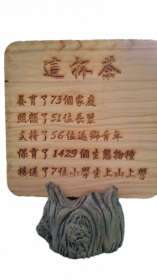 這杯茶
養育了73個家庭
照顧了51位長輩
支持了56位返鄉青年
保育了1429個生態物種
接送了7位小學生上山上學